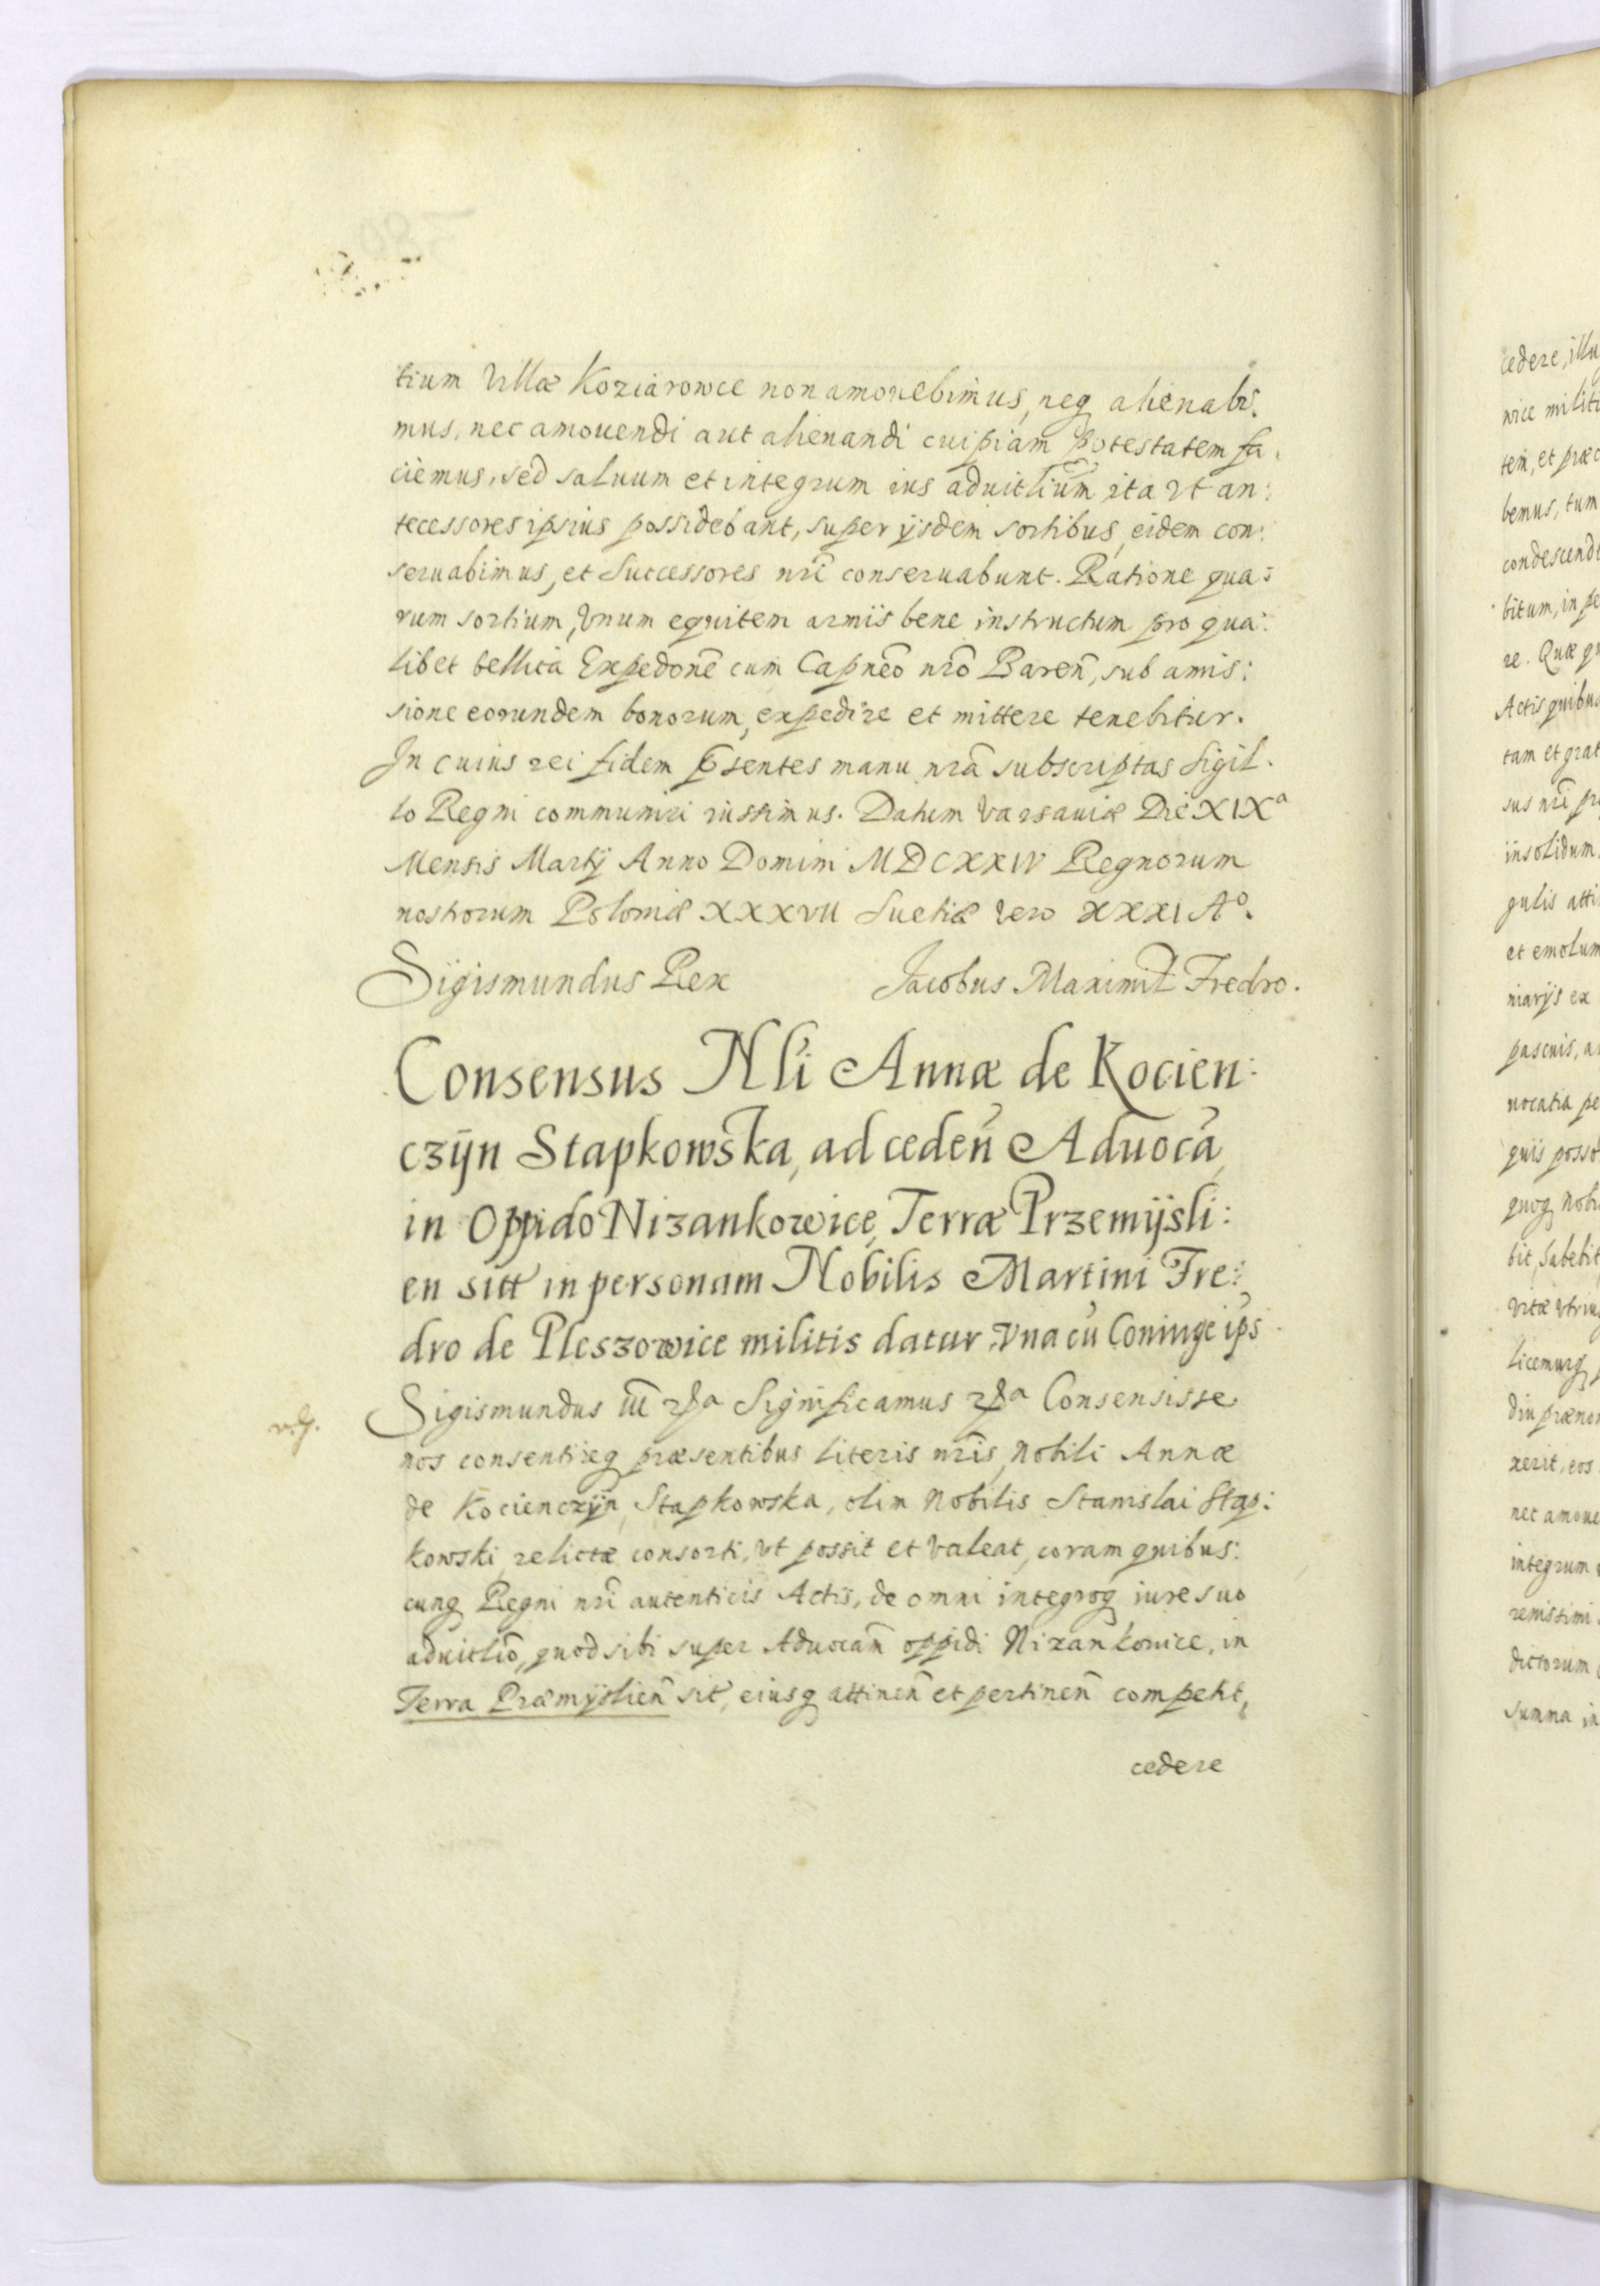 tium Villæ Koziarowce non amouebimus, neq alienabi:
mus, nec amouendi aut alienandi cuipiam potestatem fa:
ciemus, sed saluum et integrum ius aduitlium ita vt an:
tecessores ipsius possidebant, super ijsdem sortibus, eidem con:
seruabimus, et Successores nrĩ conseruabunt. Ratione qua:
rum sortium, vnum equitem armis bene instructum pro qua:
libet bellica Expedonẽ cum Capneõ nrõ Bareñ, sub amis:
sione eorundem bonorum, expedire et mittere tenebitur.
In cuius rei fidem psentes manu nrã subscriptas Sigil:
lo Regni communiri iussimus. Datum Varsauiæ Die XIXª
Mensis Martij Anno Domini MDCXXIV Regnorum
nostrorum Poloniæ XXXVII Suetiæ vero XXXI Aº.
Sigismundus Rex Jacobus Maximil Fredro.
Consensus Nli Annæ de Kocien:
czÿn Stapkowska, ad cedeñ Aduocã
in Oppido Nizankowice, Terræ Przemÿsli:
en sitt in personam Nobilis Martini Fre:
dro de Pleszowice militis datur vna cũ Coniuge ips
Sigismundus III rpª Significamus rpª Consensisse
nos consentireq præsentibus literis nrĩs, Nobili Annæ
de Kocienczÿn Stapkowska, olim Nobilis Stanislai Stap:
kowski relictæ consorti, vt possit et valeat, coram quibus:
cunq Regni nrĩ autenticis Actis, de omni integroq iure suo
aduitliõ, quod sibi super Aduocañ oppidi Nizankowice, in
Terra Præmÿslieñ sit, eiusq attineñ et pertineñ competit,
cedere
cedere, illu
wice militi
tem, et præc
bemus, tum
condescende
bitum, in pe
re. Quæ qu
Actis quibus
tam et grat
sus nrĩ pr
insolidum
gulis atti
et emolum
niarijs ex
pascuis, a
uocatia pe
quis posso
quoq Nobi
bit, habebit
vitæ vtriu
licemurq
diu præno
xerit, eos
nec amoue
integrum
renissimi
dictorum
summa ia